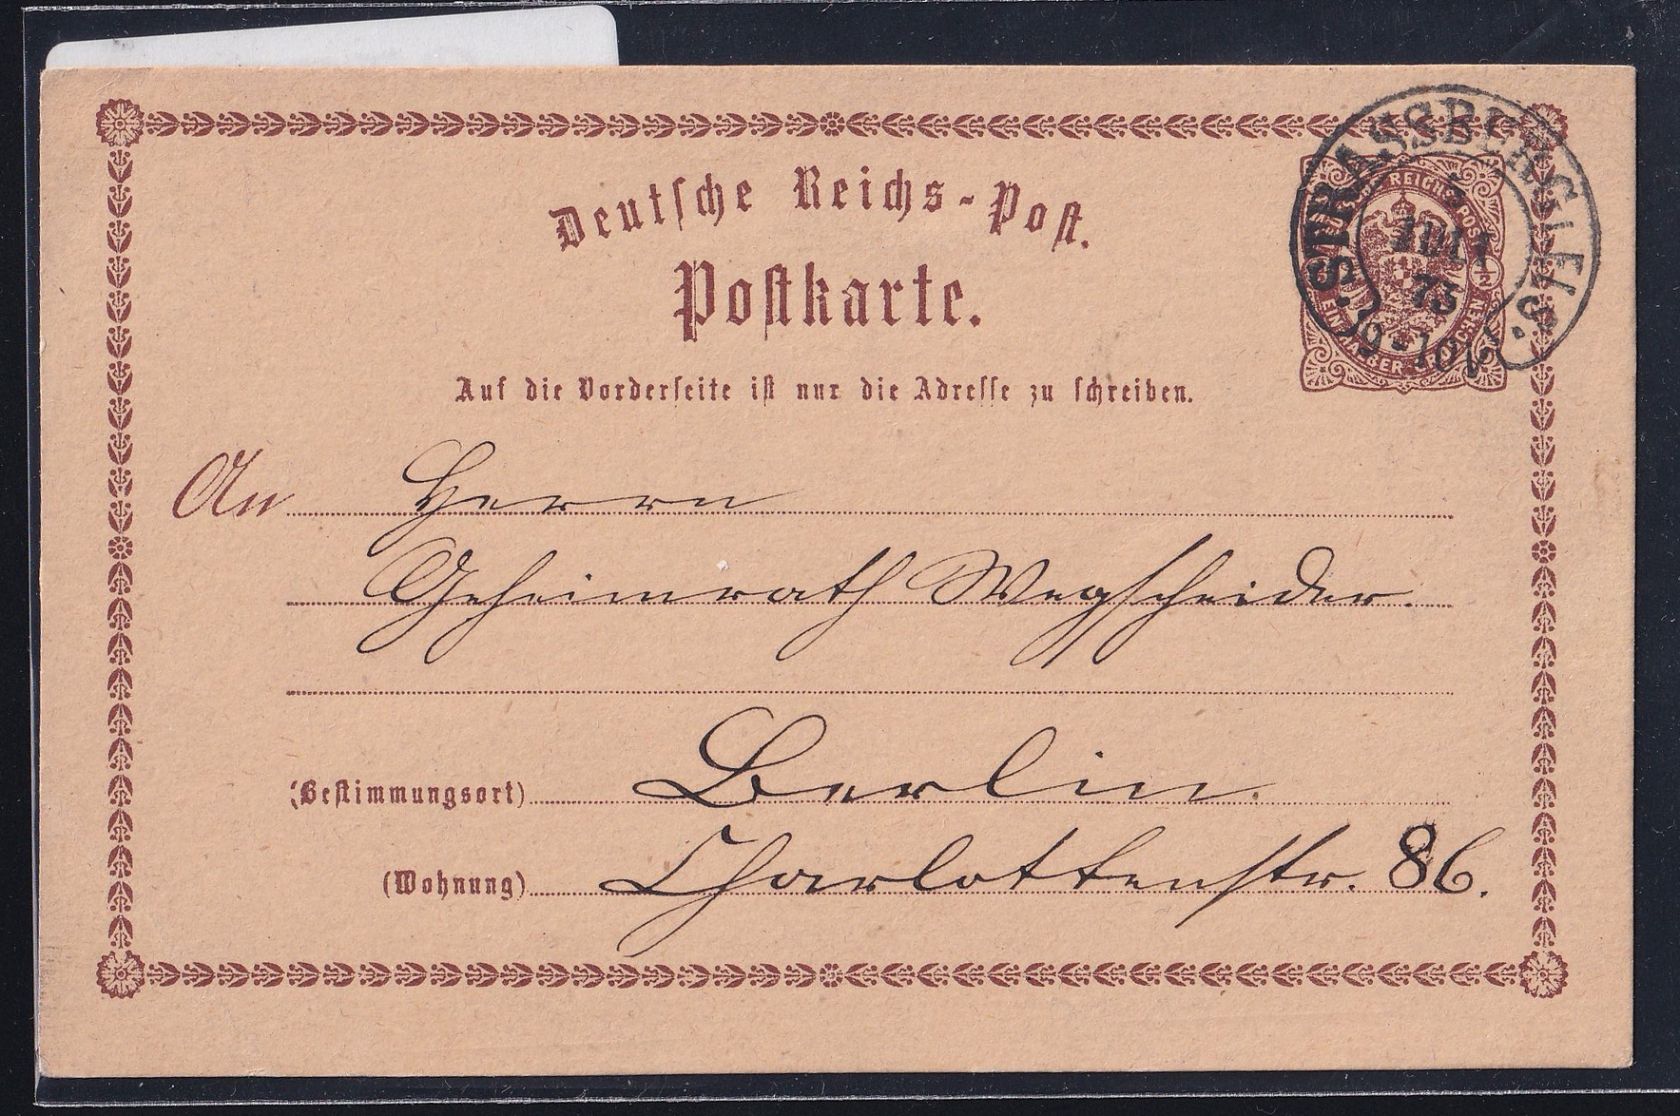 Deutsche Reichs-Post.
Postkarte.
Auf die Vorderseite ist nur die Adresse zu schreiben.
STRASSBURG I. ELS.
5
JULI
73
9-10V
REICHS POST
1/2
EIN HALBER GROSCHEN
An Herrn
Geheimrath Wegscheider.
(Bestimmungsort) Berlin.
(Wohnung) Charlottenstr. 86.